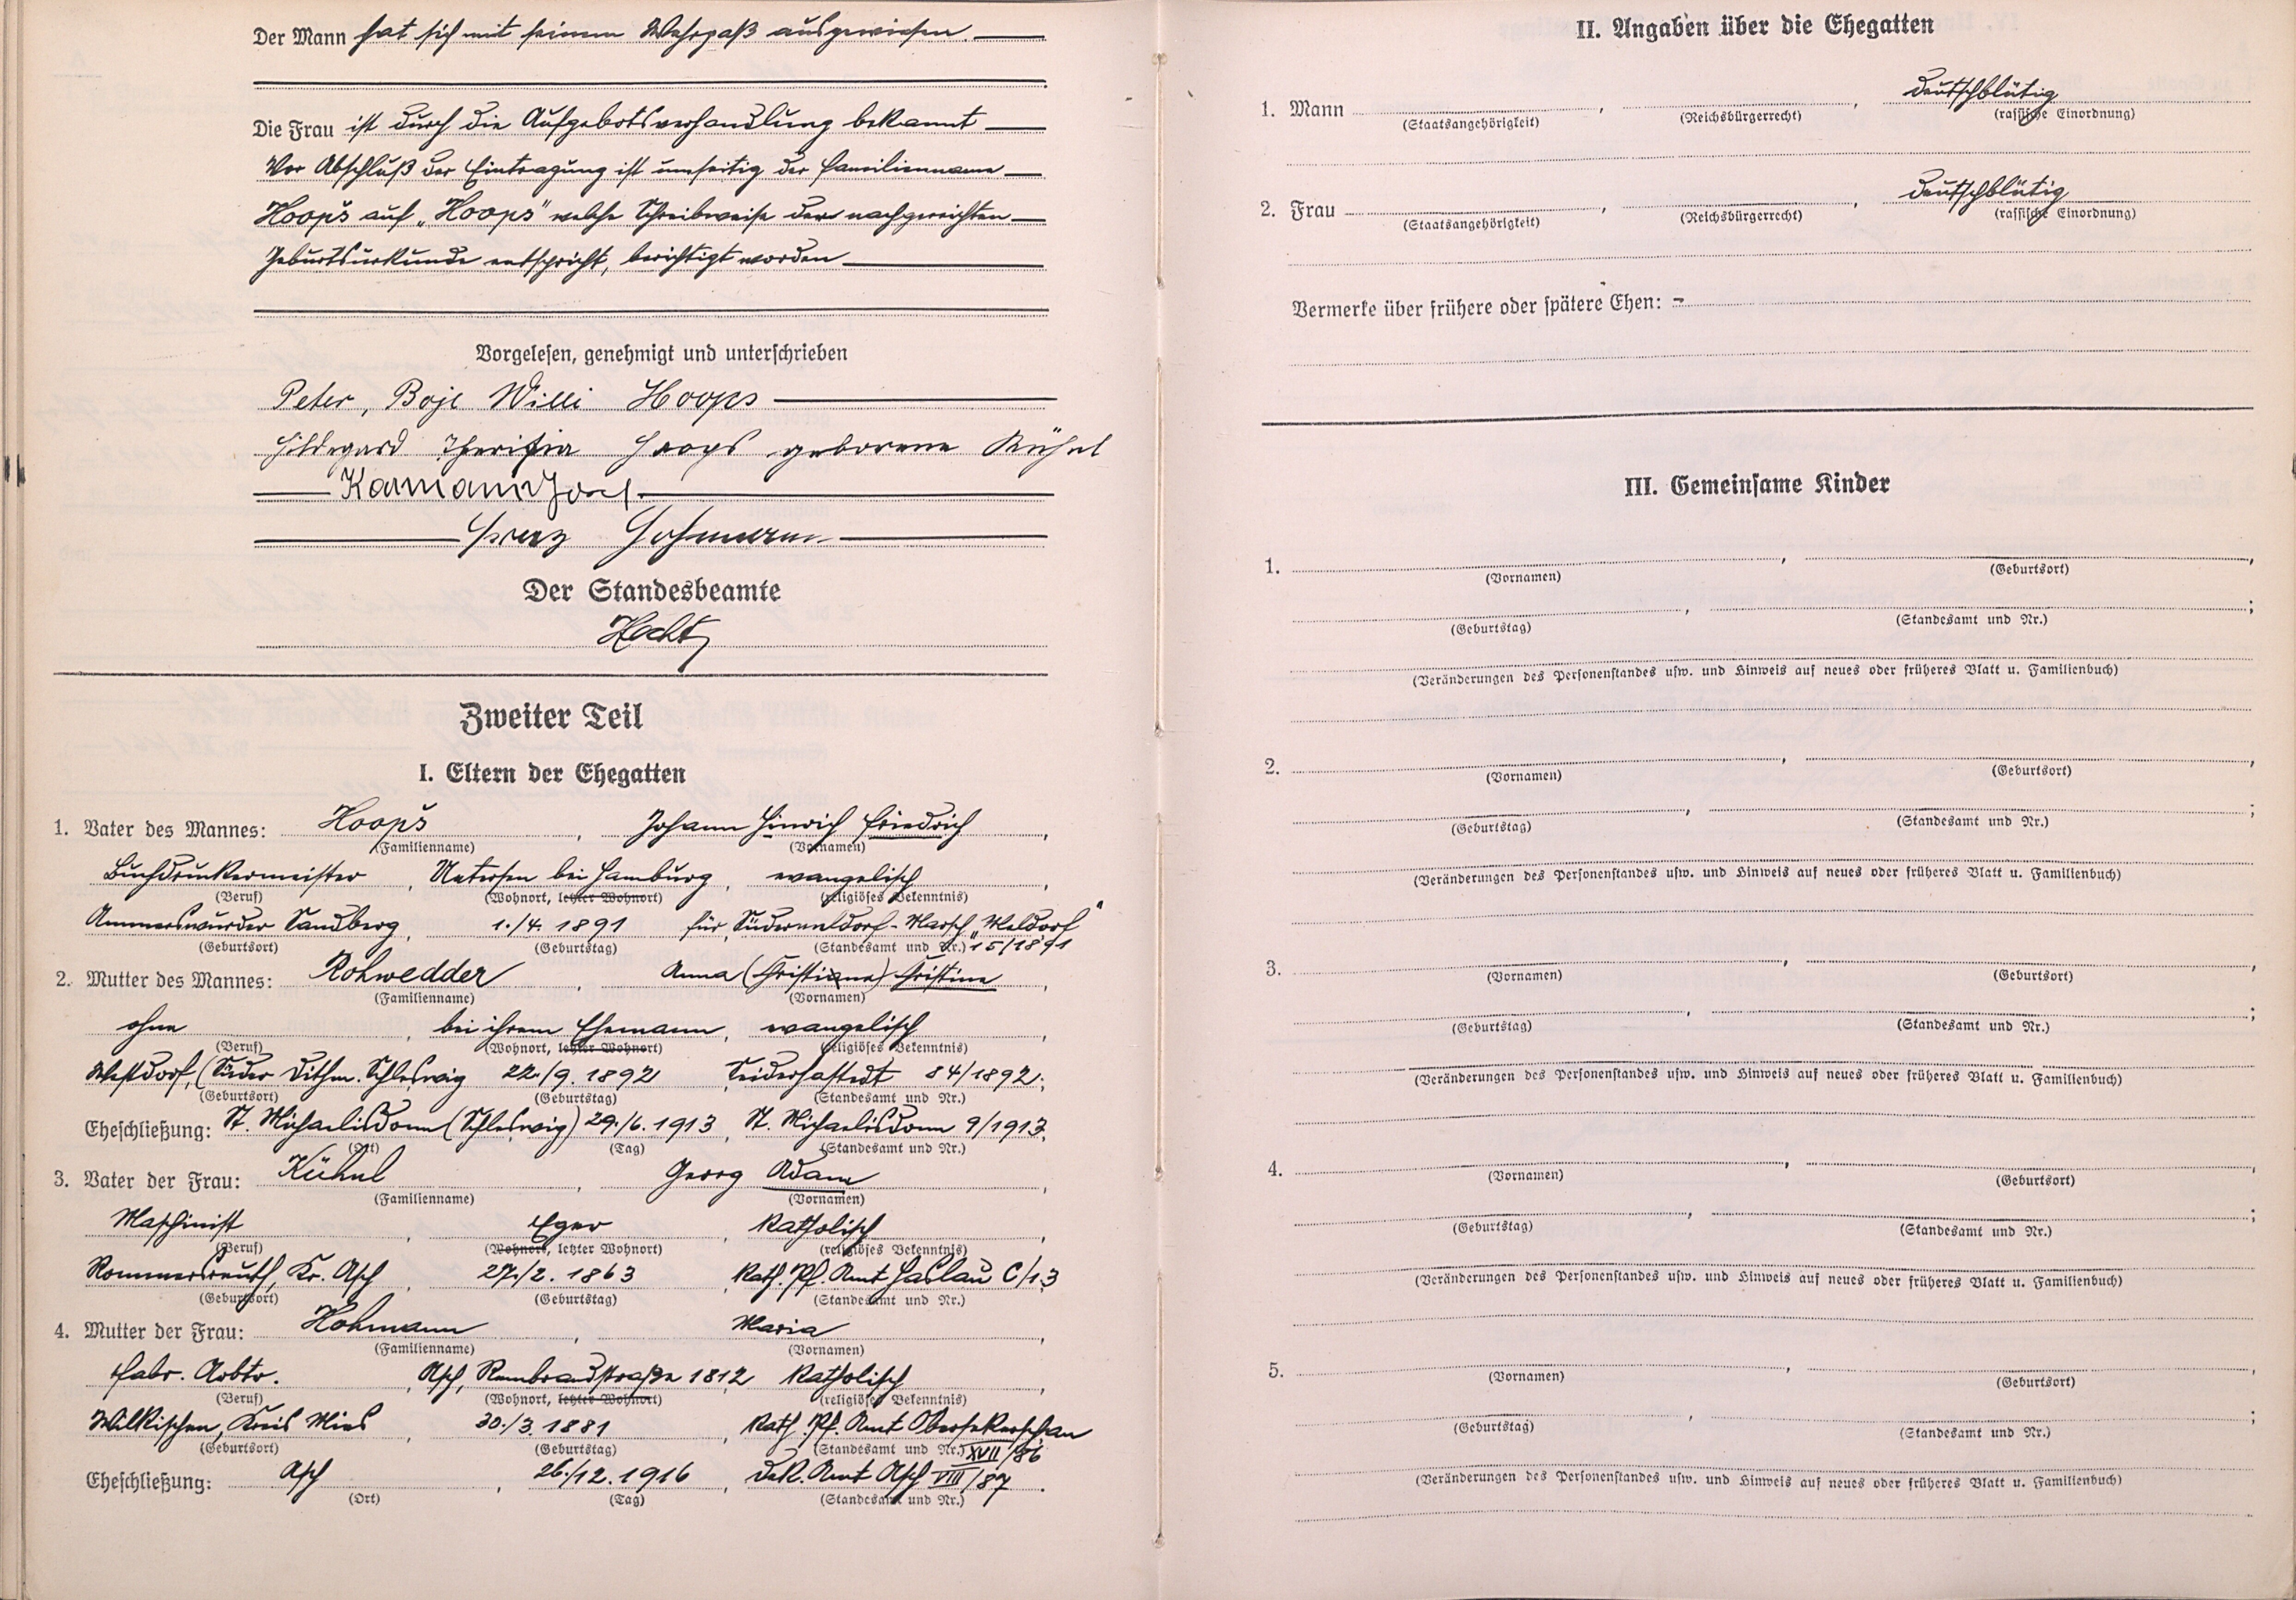 Der Mann hat sich mit seinem Wehrpaß ausgewiesen.
Die Frau ist durch die Aufgebotsverhandlung bekannt
Vor Abschluß der Eintragung ist umseitig der Familienname
Hoop's auf „Hoops" welche Schreibweise der nachgereichten
Geburtsurkunde entspricht, berichtigt worden
Vorgelesen, genehmigt und unterschrieben
Peter, Boje Willi Hoops
Hildegard Theresia Hoops geborene Kühnl
Karmann Josef
Franz Hohmann
Der Standesbeamte
Hecht
Zweiter Teil
I. Eltern der Ehegatten
1. Vater des Mannes: Hoop's, Johann Hinrich Friedrich,
(Familienname) (Vornamen)
Buchdruckermeister, Uetersen bei Hamburg, evangelisch,
(Beruf) (Wohnort, letzter Wohnort) (religiöses Bekenntnis)
Ammerswurder Sandberg, 1./4. 1891 für Südermeldorf-Marsch „Meldorf"
(Geburtsort) (Geburtstag) (Standesamt und Nr.) 15/1891
2. Mutter des Mannes: Rohwedder, Anna (Christiane) Christine,
(Familienname) (Vornamen)
ohne, bei ihrem Ehemann, evangelisch,
(Beruf) (Wohnort, letzter Wohnort) (religiöses Bekenntnis)
Westdorf, (Süder Dithm. Schleswig 22./9. 1892 84/1892.
(Geburtsort) (Geburtstag) (Standesamt und Nr.)
Eheschließung: St. Michaelisdonn (Schleswig) 29./6. 1913, St. Michaelisdonn 9/1913.
(Ort) (Tag) (Standesamt und Nr.)
3. Vater der Frau: Kühnl, Georg Adam,
(Familienname) (Vornamen)
Maschinist, Eger, katholisch,
(Beruf) (Wohnort, letzter Wohnort) (religiöses Bekenntnis)
Rommersreuth, Kr. Asch, 27./2. 1863, Kath. Pf. Amt Haslau C/13
(Geburtsort) (Geburtstag) (Standesamt und Nr.)
4. Mutter der Frau: Hohmann, Maria,
(Familienname) (Vornamen)
Fabr. Arbtr., Asch, Rembrandstraße 1812 katholisch,
(Beruf) (Wohnort, letzter Wohnort) (religiöses Bekenntnis)
Wilkischen, Kreis Mies, 30./3. 1881, Kath. Pf. Amt
(Geburtsort) (Geburtstag) (Standesamt und Nr.) XVII/86
Eheschließung: Asch, 26./12. 1916, Dek. Amt Asch VIII/87.
(Ort) (Tag) (Standesamt und Nr.)
II. Angaben über die Ehegatten
1. Mann , , deutschblütig
(Staatsangehörigkeit) (Reichsbürgerrecht) (rassische Einordnung)
2. Frau , , deutschblütig
(Staatsangehörigkeit) (Reichsbürgerrecht) (rassische Einordnung)
Vermerke über frühere oder spätere Ehen: -
III. Gemeinsame Kinder
1. , ,
(Vornamen) (Geburtsort)
, ;
(Geburtstag) (Standesamt und Nr.)
(Veränderungen des Personenstandes usw. und Hinweis auf neues oder früheres Blatt u. Familienbuch)
2. , ,
(Vornamen) (Geburtsort)
, ;
(Geburtstag) (Standesamt und Nr.)
(Veränderungen des Personenstandes usw. und Hinweis auf neues oder früheres Blatt u. Familienbuch)
3. , ,
(Vornamen) (Geburtsort)
, ;
(Geburtstag) (Standesamt und Nr.)
(Veränderungen des Personenstandes usw. und Hinweis auf neues oder früheres Blatt u. Familienbuch)
4. , ,
(Vornamen) (Geburtsort)
, ;
(Geburtstag) (Standesamt und Nr.)
(Veränderungen des Personenstandes usw. und Hinweis auf neues oder früheres Blatt u. Familienbuch)
5. , ,
(Vornamen) (Geburtsort)
, ;
(Geburtstag) (Standesamt und Nr.)
(Veränderungen des Personenstandes usw. und Hinweis auf neues oder früheres Blatt u. Familienbuch)